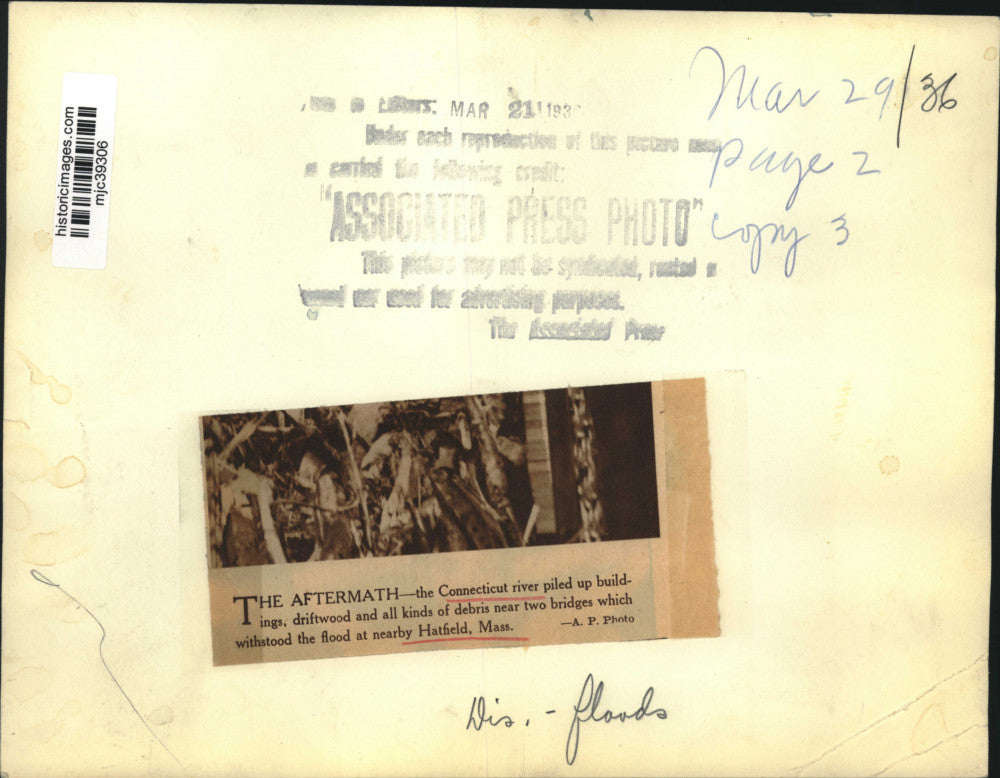 historicimages.com
mjc39306
Editors: MAR 21 193
Under each reproduction of this picture must
carried the following credit:
"ASSOCIATED PRESS PHOTO"
This picture may not be syndicated, rented
nor used for advertising purposes.
The Associated Press
Mar 29/36
page 2
copy 3
THE AFTERMATH—the Connecticut river piled up build-
ings, driftwood and all kinds of debris near two bridges which
withstood the flood at nearby Hatfield, Mass. —A. P. Photo
Dis. - floods